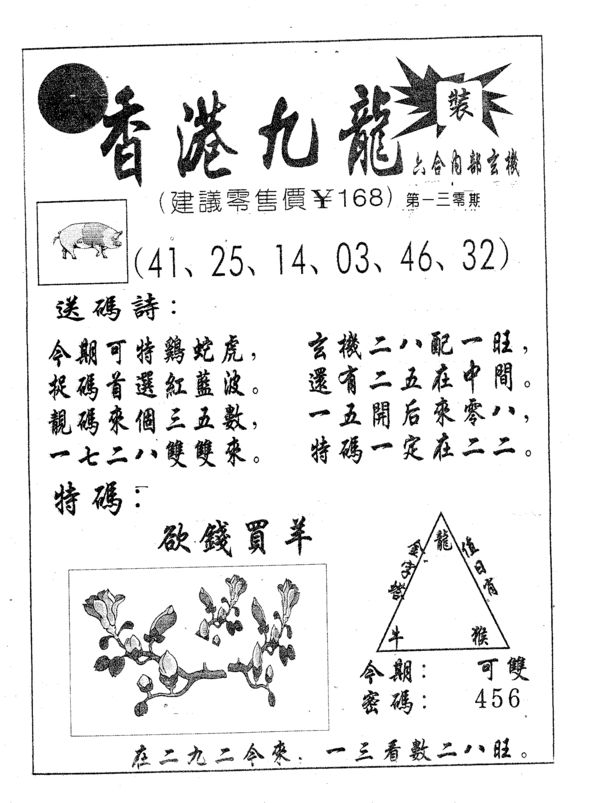 香港九龍
裝
六合內部玄機
(建議零售價¥168) 第一三零期
(41、25、14、03、46、32)
送碼詩：
今期可特鷄蛇虎，
捉碼首選紅藍波。
靚碼來個三五數，
一七二八雙雙來。
玄機二八配一旺，
還有二五在中間。
一五開后來零八，
特碼一定在二二。
特碼：
欲錢買羊
龍
金字塔
值日肖
牛 猴
今期： 可雙
密碼： 456
在二九二令來．一三看數二八旺。